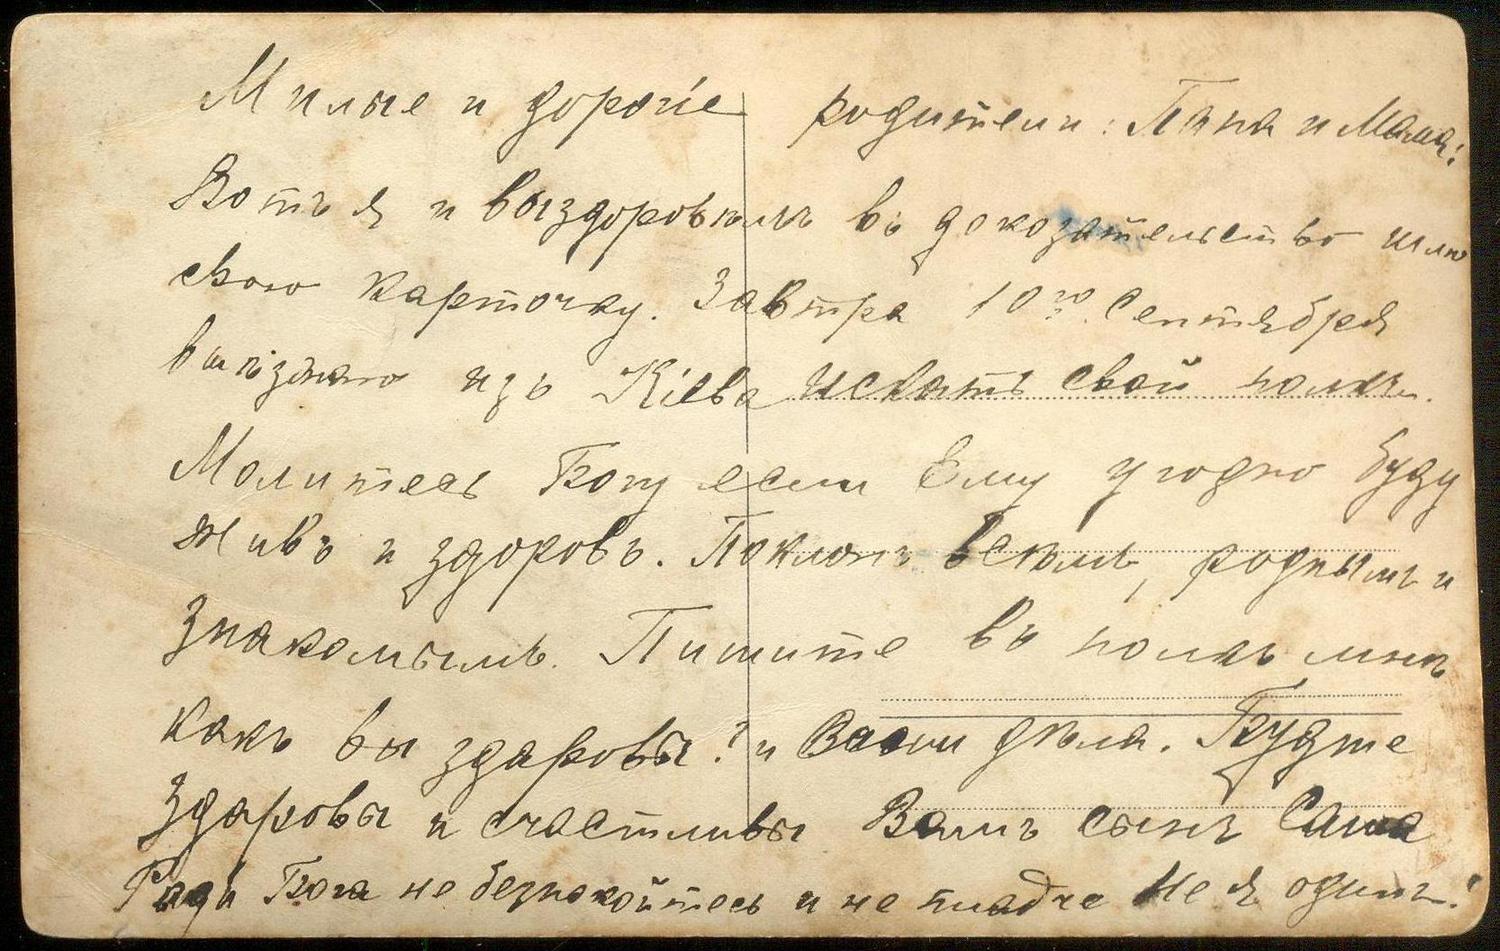 Милые и дорогіе родители: Папа и Мама!
Вотъ я и выздоровѣлъ въ докозательство шлю
свою карточку. Завтра 10го Сентября
выѣзжаю изъ Кіева искать свой полкъ.
Молитесь Богу если Ему угодно буду
живъ и здоровъ. Поклонъ всѣмъ, роднымъ и
знакомымъ. Пишите въ полкъ мнѣ
какъ вы здаровы? и Ваши дѣла. Будте
здаровы и счастливы Вашъ сынъ Саша
Ради Бога не безпакойтесь и не плачте Не я одинъ!